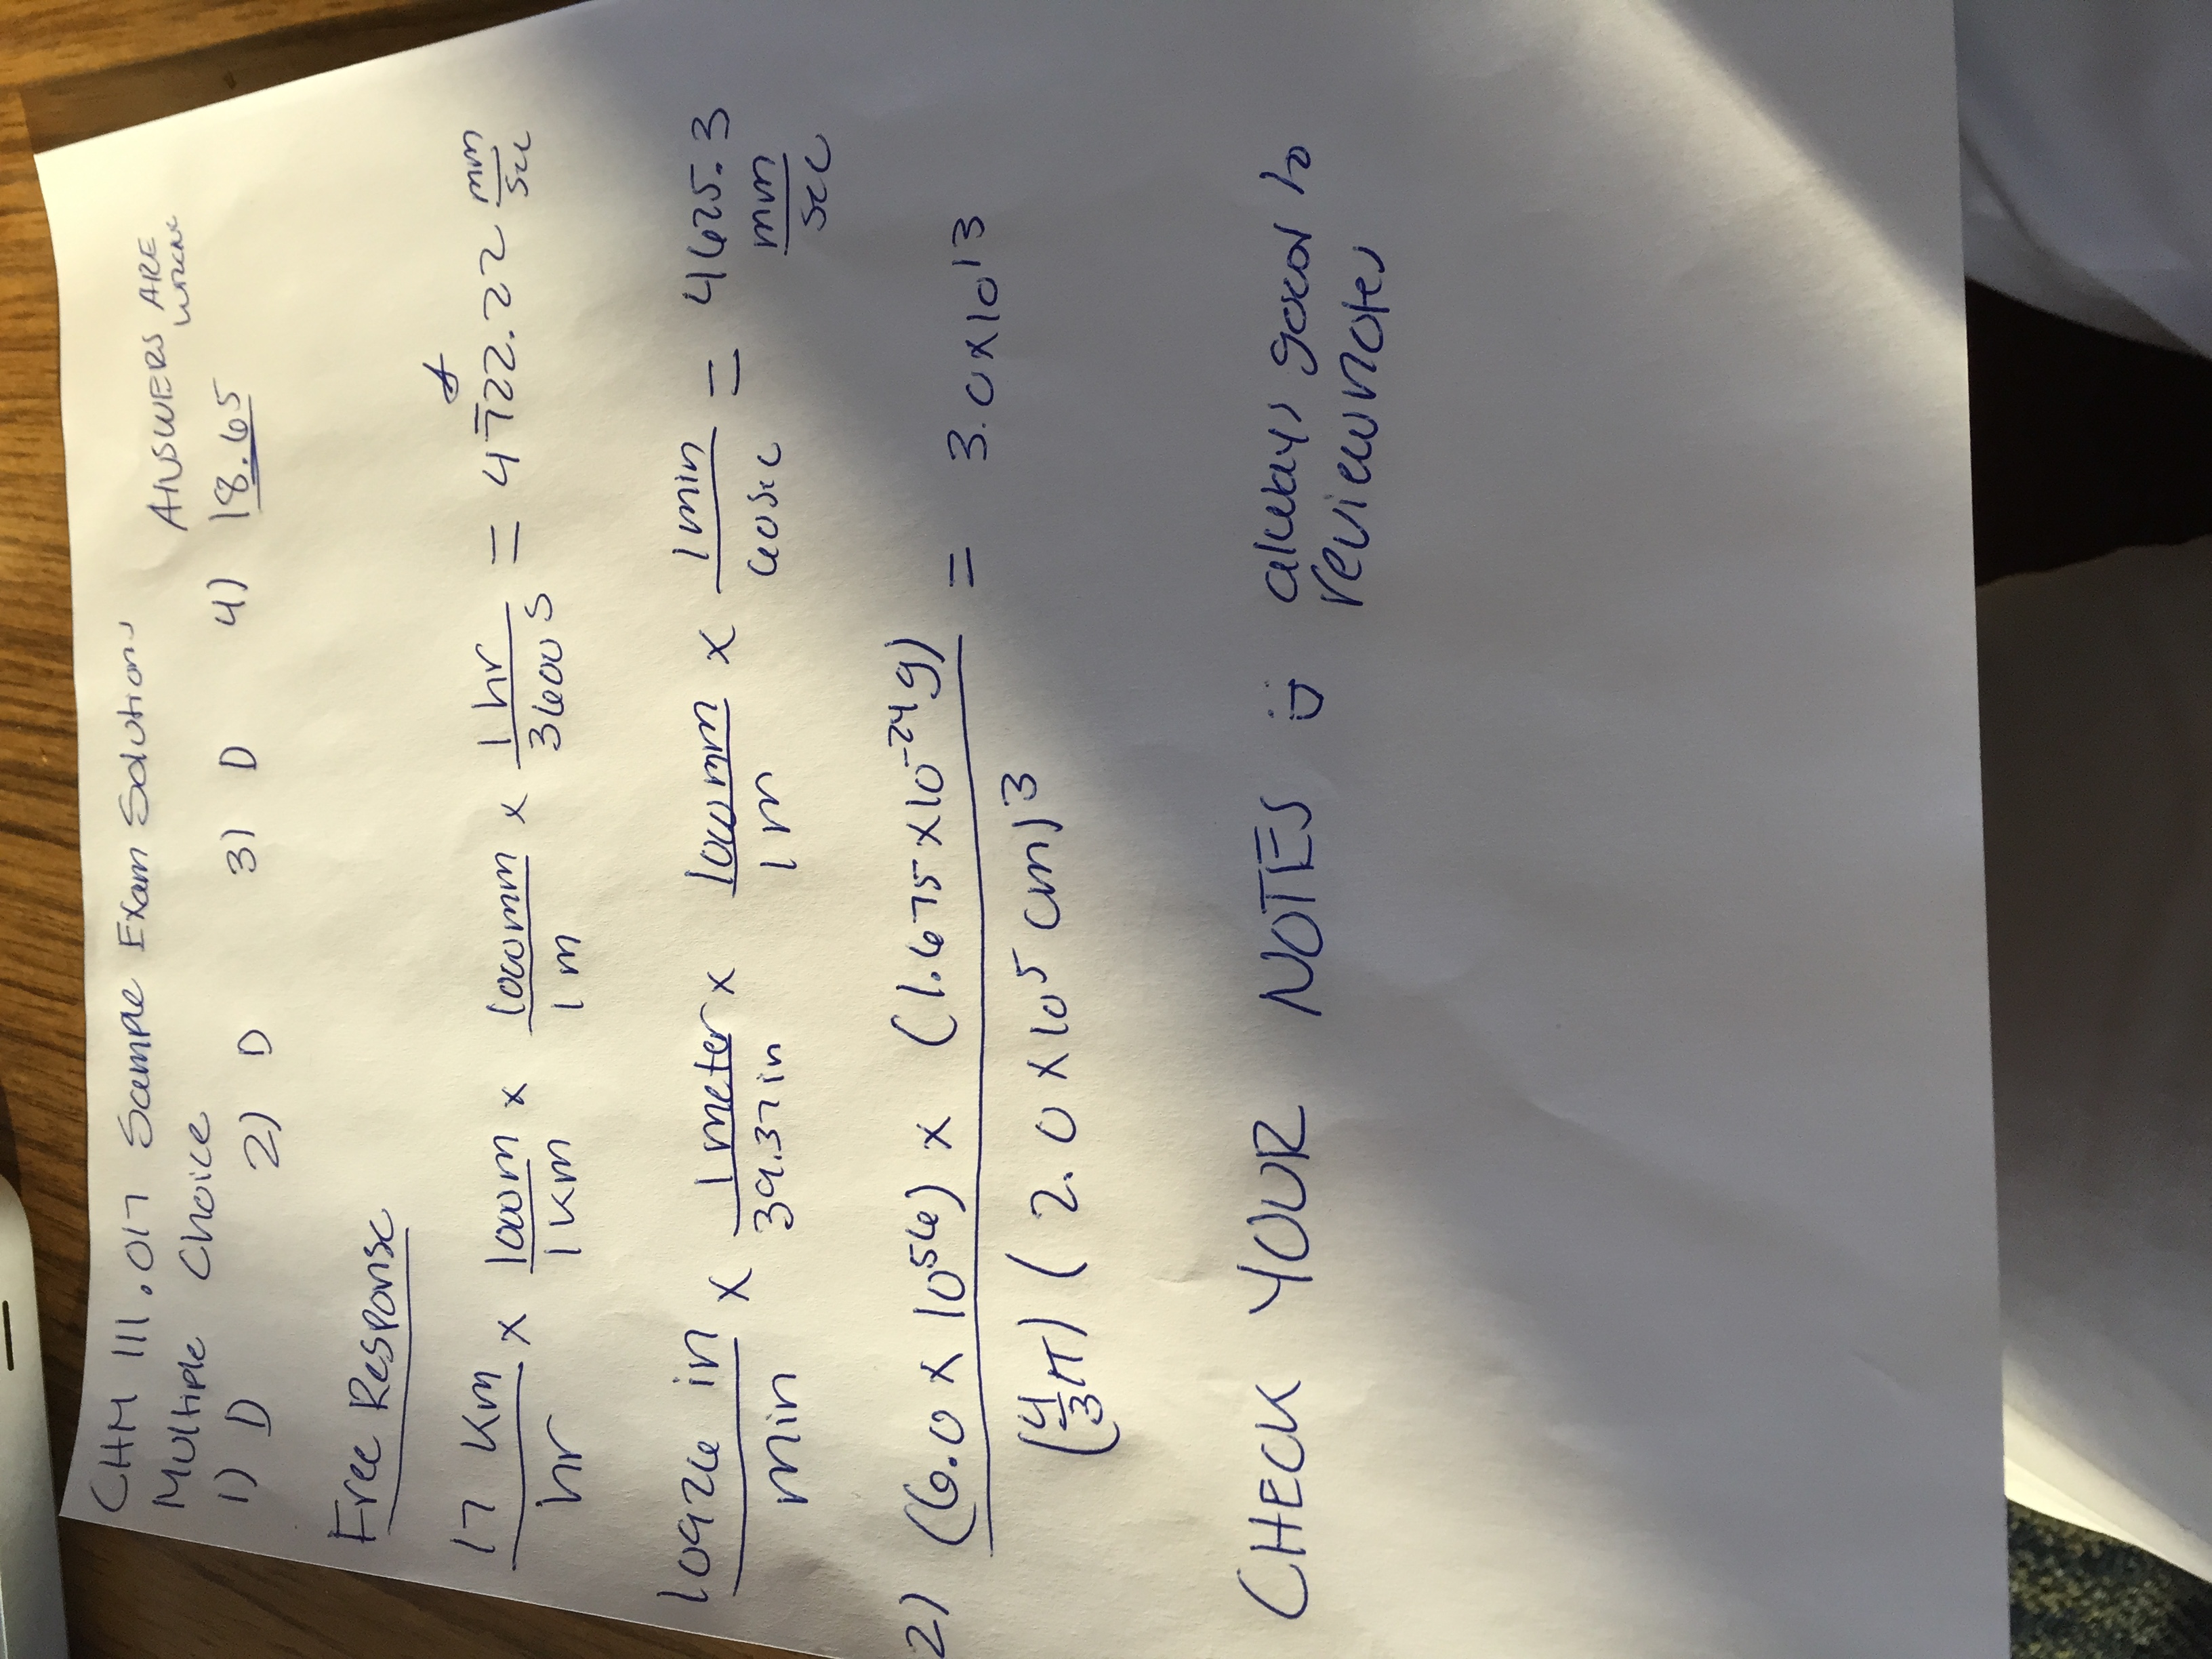 CHM 111.017 Sample Exam Solutions
Multiple Choice ANSWERS ARE
1) D 2) D 3) D 4) 18.65
Free Response
17 km/hr x 1000m/1km x 1000mm/1m x 1hr/3600s = 4722.22 mm/sec
10926 in/min x 1meter/39.37in x 1000mm/1m x 1min/60sec = 4625.3 mm/sec
2) (6.0 x 10^56) x (1.675 x 10^-24 g) / (4/3 π) (2.0 x 10^5 cm)^3 = 3.0 x 10^13
CHECK YOUR NOTES :) always good to
review notes